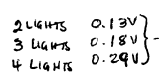 2 LIGHTS 0.13V
3 LIGHTS 0.18V
4 LIGHTS 0.29V